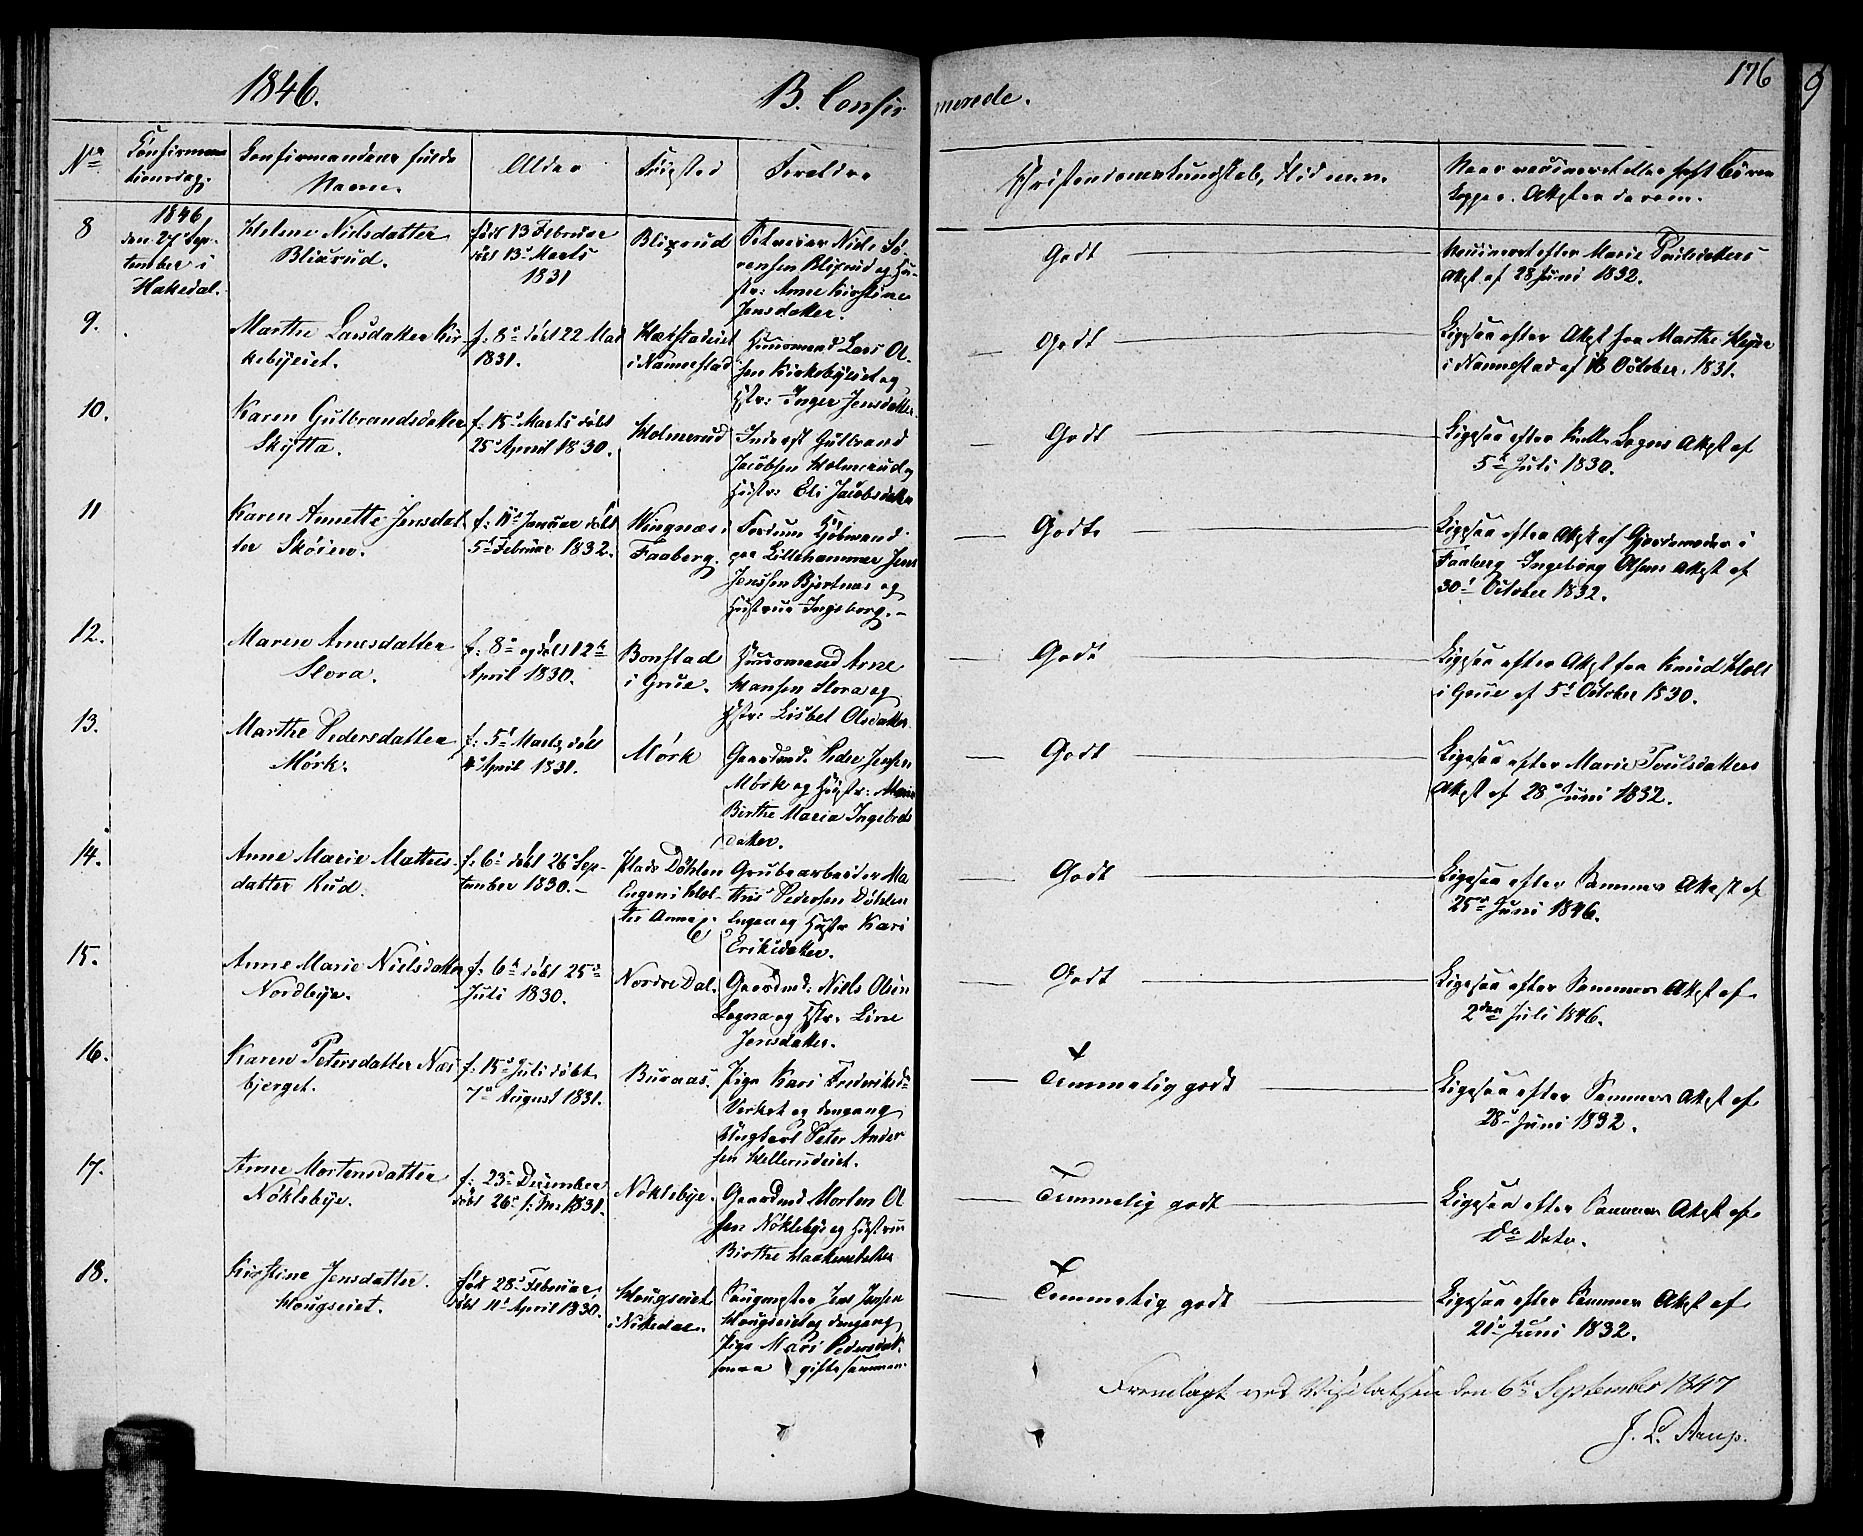 1846. B. Confir merede. 176
Nr Confirma- tionsdag. Confirmandens fulde Navn. Alder Fødested Forældre Christendomskundskab, Flid m.m. Naar vaccineret eller haft Børne
kopper. Attester derom.
8 1846 den 27 Sep-
tember i
Hakedal.
Helene Nielsdatter
Blixrud.
født 13 Februar
døbt 13 Marts
1831
Blixrud
Niels Sø-
rensen Blixrud og Hu-
str: Anne Kirstine
Jensdatter.
Godt
Vaccineret efter Marie Poulsdatters
Attst af 28 Juni 1832.
9.
Marthe Larsdatter Kir-
kebyeiet.
f: 8de døbt 22 Mai
1831.
i Nannestad
Huusmand Lars Ol-
sen Kirkebyeiet og
Hstr: Inger Jensdatter.
Godt
Ligesaa efter Attst fra Marthe
i Nannestad af 16 October 1831.
10.
Karen Gulbrandsdatter
Skytta.
f: 15de Marts døbt
25de April 1830.
Holmerud
Inderst Gulbrand
Jacobsen Holmerud og
Hustr: Eli Jacobsdatter
Godt
Ligesaa efter Attst af
5te Juli 1830.
11
Karen Annette Jensdat
ter Skøien.
f: 11te Januar døbt
5te Februar 1832.
Wingnæs i
Faaberg.
Forhen
paa Lillehammer Jens
Jenssen Bjertnæs og
Hustrue Ingeborg.-
Godt
Ligesaa efter Attst af Gjordemoder i
Faaberg Ingeborg Olsens Attst af
30te October 1832.
12.
Maren Arnesdatter
Slora.
f: 8de og døbt 12te
April 1830.
Bonstad
i Grue.
Huusmand Arne
Hansen Slora og
Hstr: Lisbet Olsdatter.
Godt
Ligesaa efter Attst fra Knud Holt
i Grue af 5te October 1830.
13.
Marthe Pedersdatter
Mørk.
f: 5te Marts, døbt
4de April 1831.
Mørk
Gaardmd. Peder Jensen
Mørk og Hustr:
Birthe Maria Ingebrets
datter.
Godt
Ligesaa efter Marie Poulsdatters
Attst af 28de Juni 1832.
14.
Anne Marie Mathis-
datter Rud.
f: 6te døbt 26de Sep-
tember 1830.-
Plads Døhlen
Engen i Hol-
ter Annex.
Grubearbeider Ma
this Pedersen Døhlen
Engen og Hustr Kari
Eriksdatter.
Godt
Ligesaa efter Sammes Attest af
25de Juni 1846.
15.
Anne Marie Nielsdatter
Nordbye.
f: 6te døbt 25de
Juli 1830.
Nordre Dal.
Gaardmd: Niels Olsen
og Hstr. Line
Jensdatter.
Godt
Ligesaa efter Sammes Attst af
2den Juli 1846.
16.
Karen Petersdatter Næs
bjerget.
f: 15de Juli døbt
7de August 1831.
Buraas.
Pige Kari Frederiksd.
Verket og dengang
Ungkarl Peter Ander
sen Hellerudeiet.
Temmelig godt
Ligesaa efter Sammes Attst af
28de Juni 1832.
17.
Anne Mortensdatter
Nøklebye.
f: 23de December
døbt 26de 1831.
Nøklebye.
Gaardmd Morten Ol
sen Nøklebye og Hustrue
Birthe Haakensdatter
Temmelig godt
Ligesaa efter Sammes Attst af
Do Dato.
18.
Kirstine Jensdatter.
Haugseiet.
født 28de Februar,
døbt 11te April 1830.
Haugseiet
i Nitedal.
Jens Jensen
Haugseiet og dengang
Pige Mari Pedersdat.
gifte sammen.
Temmelig godt
Ligesaa efter Sammes Attst af
21de Juni 1832.
Fremlagt ved Visitatsen den 6te September 1847
J. L. Arup.